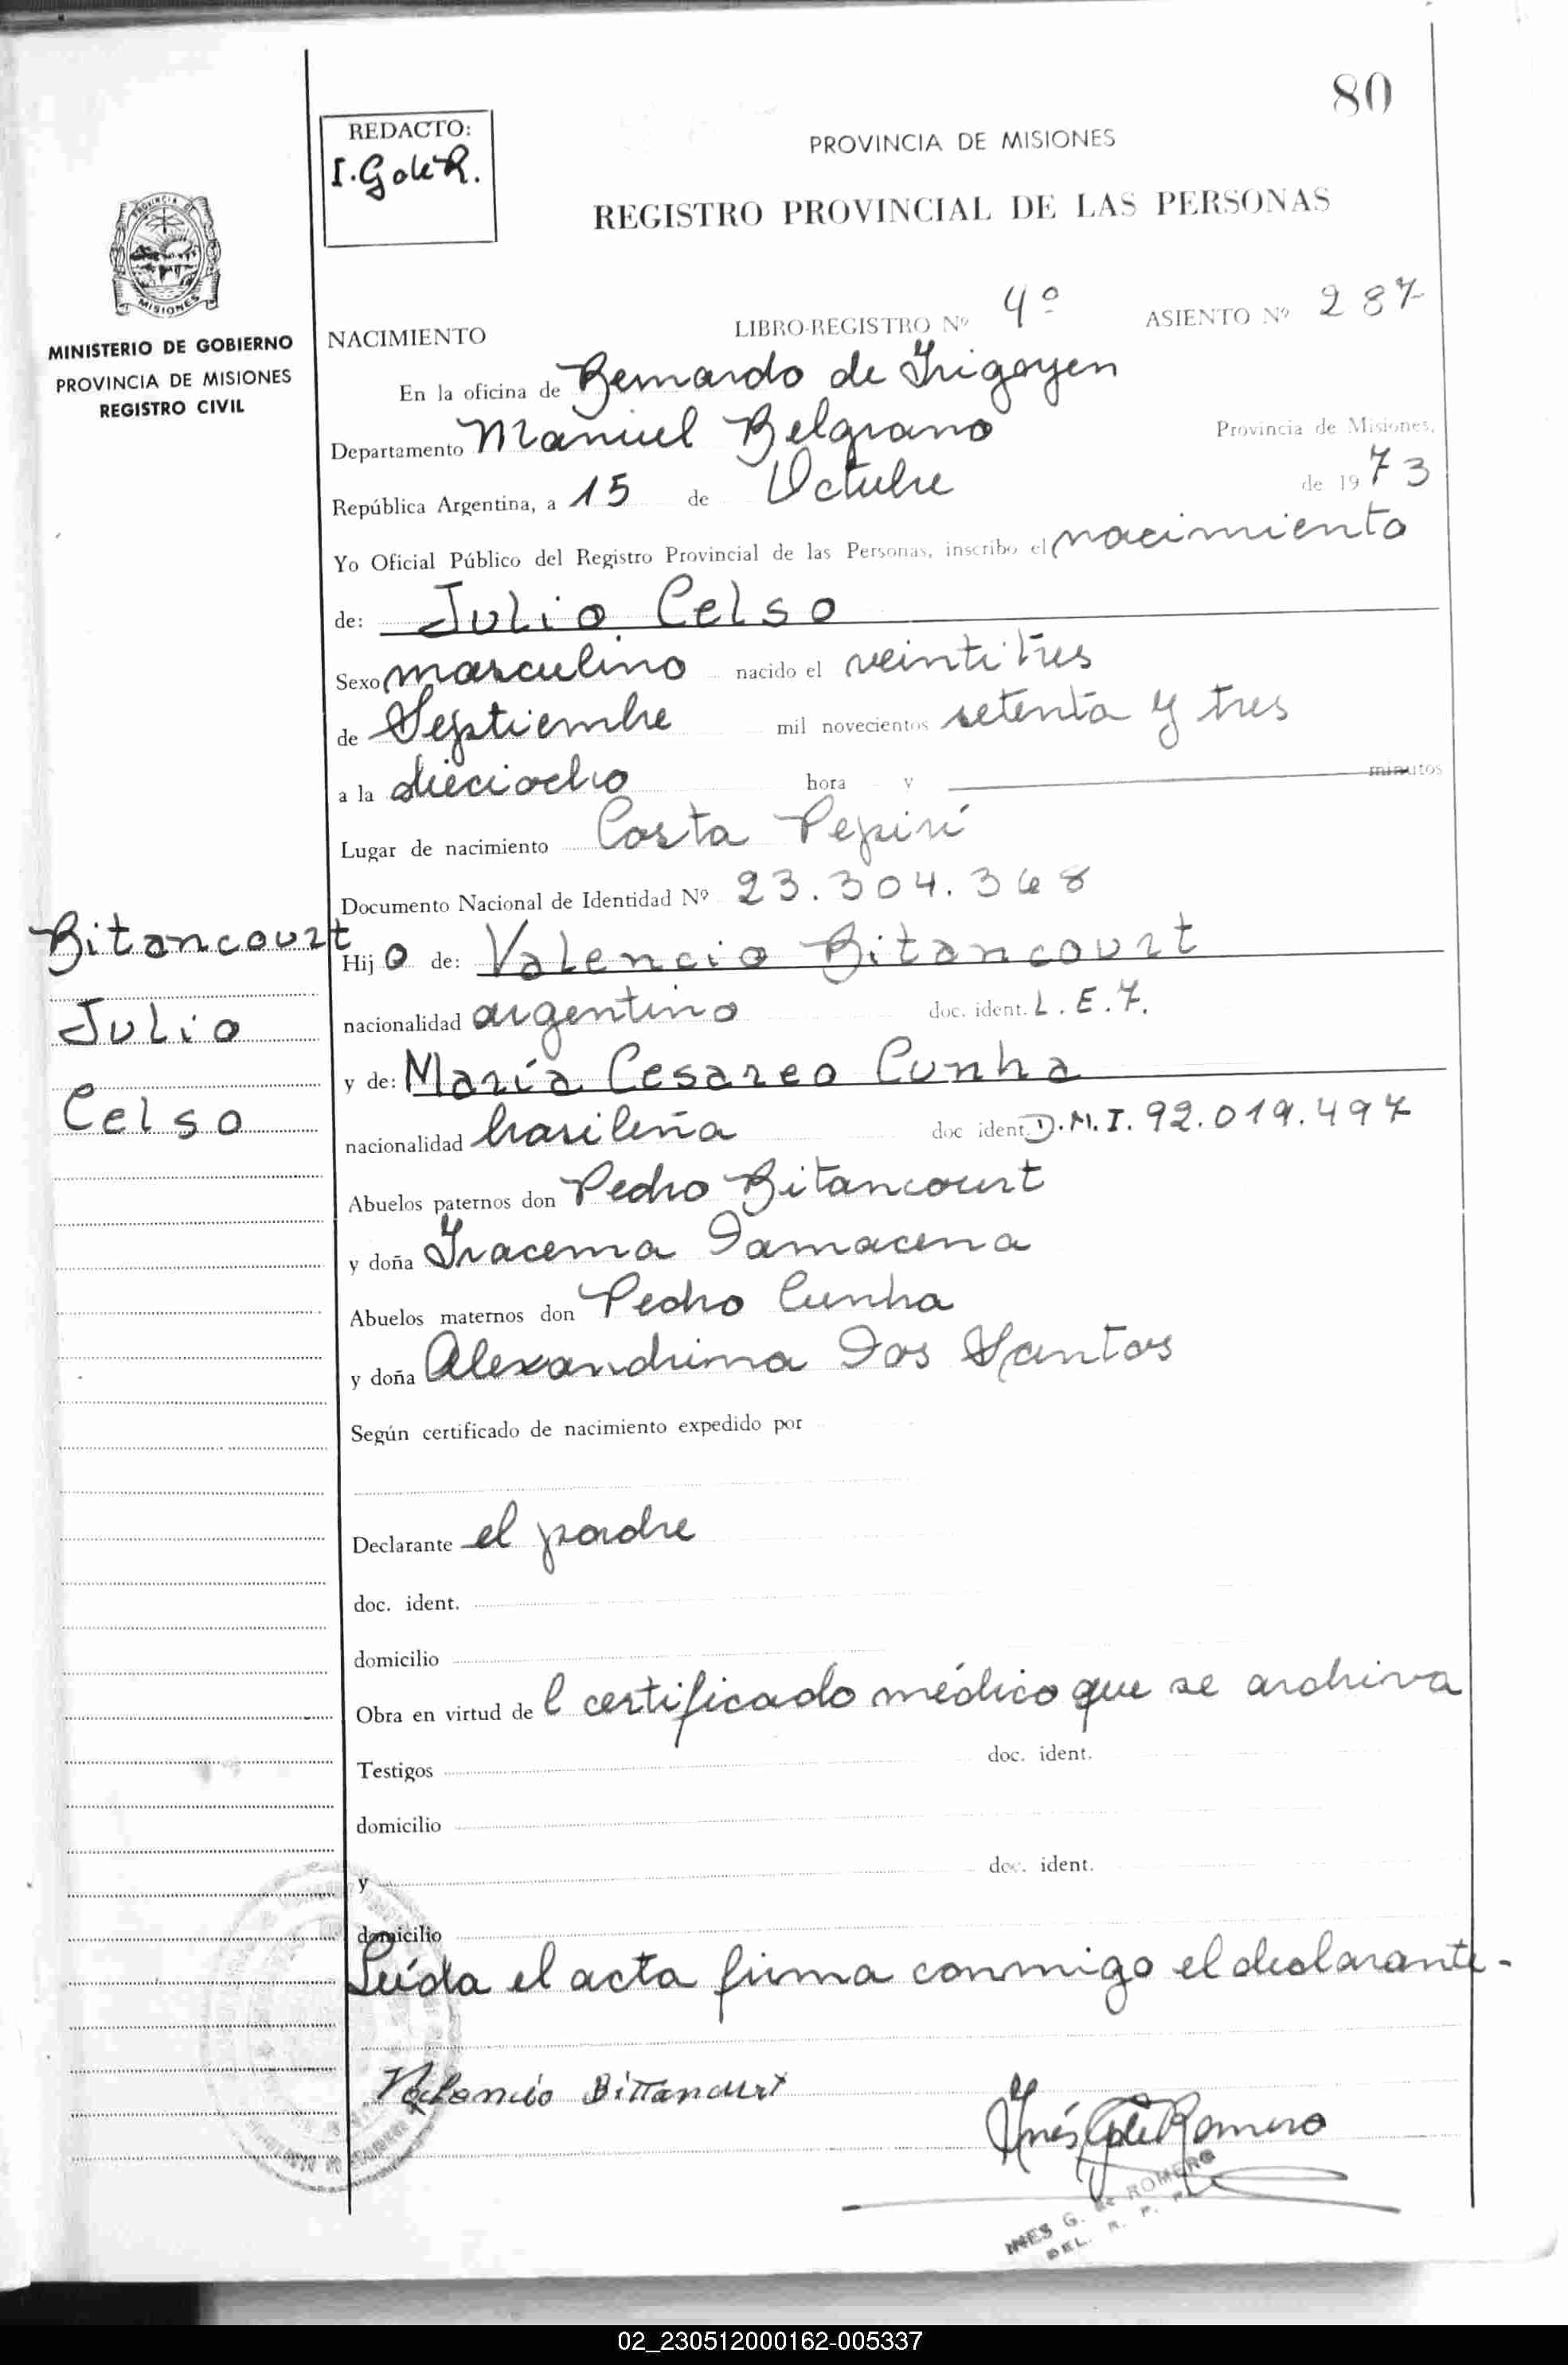 80
REDACTO:
I. G. de R.
PROVINCIA DE MISIONES
REGISTRO PROVINCIAL DE LAS PERSONAS
PROVINCIA DE
MISIONES
MINISTERIO DE GOBIERNO
PROVINCIA DE MISIONES
REGISTRO CIVIL
NACIMIENTO LIBRO-REGISTRO Nº 4º ASIENTO Nº 287
En la oficina de Bernardo de Yrigoyen
Departamento Manuel Belgrano Provincia de Misiones,
República Argentina, a 15 de Octubre de 1973
Yo Oficial Público del Registro Provincial de las Personas, inscribo el nacimiento
de: Julio Celso
Sexo masculino nacido el veintitres
de Septiembre mil novecientos setenta y tres
a la dieciocho hora y minutos
Lugar de nacimiento Costa Pepirí
Documento Nacional de Identidad Nº 23.304.368
Bitancourt
Julio
Celso
Hijo de: Valencio Bitancourt
nacionalidad argentino doc. ident. L.E.7.
y de: María Cesareo Cunha
nacionalidad brasileña doc ident. D.N.I. 92.019.497
Abuelos paternos don Pedro Bitancourt
y doña Yracema Damacena
Abuelos maternos don Pedro Cunha
y doña Alexandrina Dos Santos
Según certificado de nacimiento expedido por
Declarante el padre
doc. ident.
domicilio
Obra en virtud de l certificado médico que se archiva
Testigos doc. ident.
domicilio
y doc. ident.
domicilio
Leída el acta firma conmigo el declarante.-
Valencio Bittancurt
Ynés G de Romero
INES G. de ROMERO
DEL. R. P. P.
02_230512000162-005337